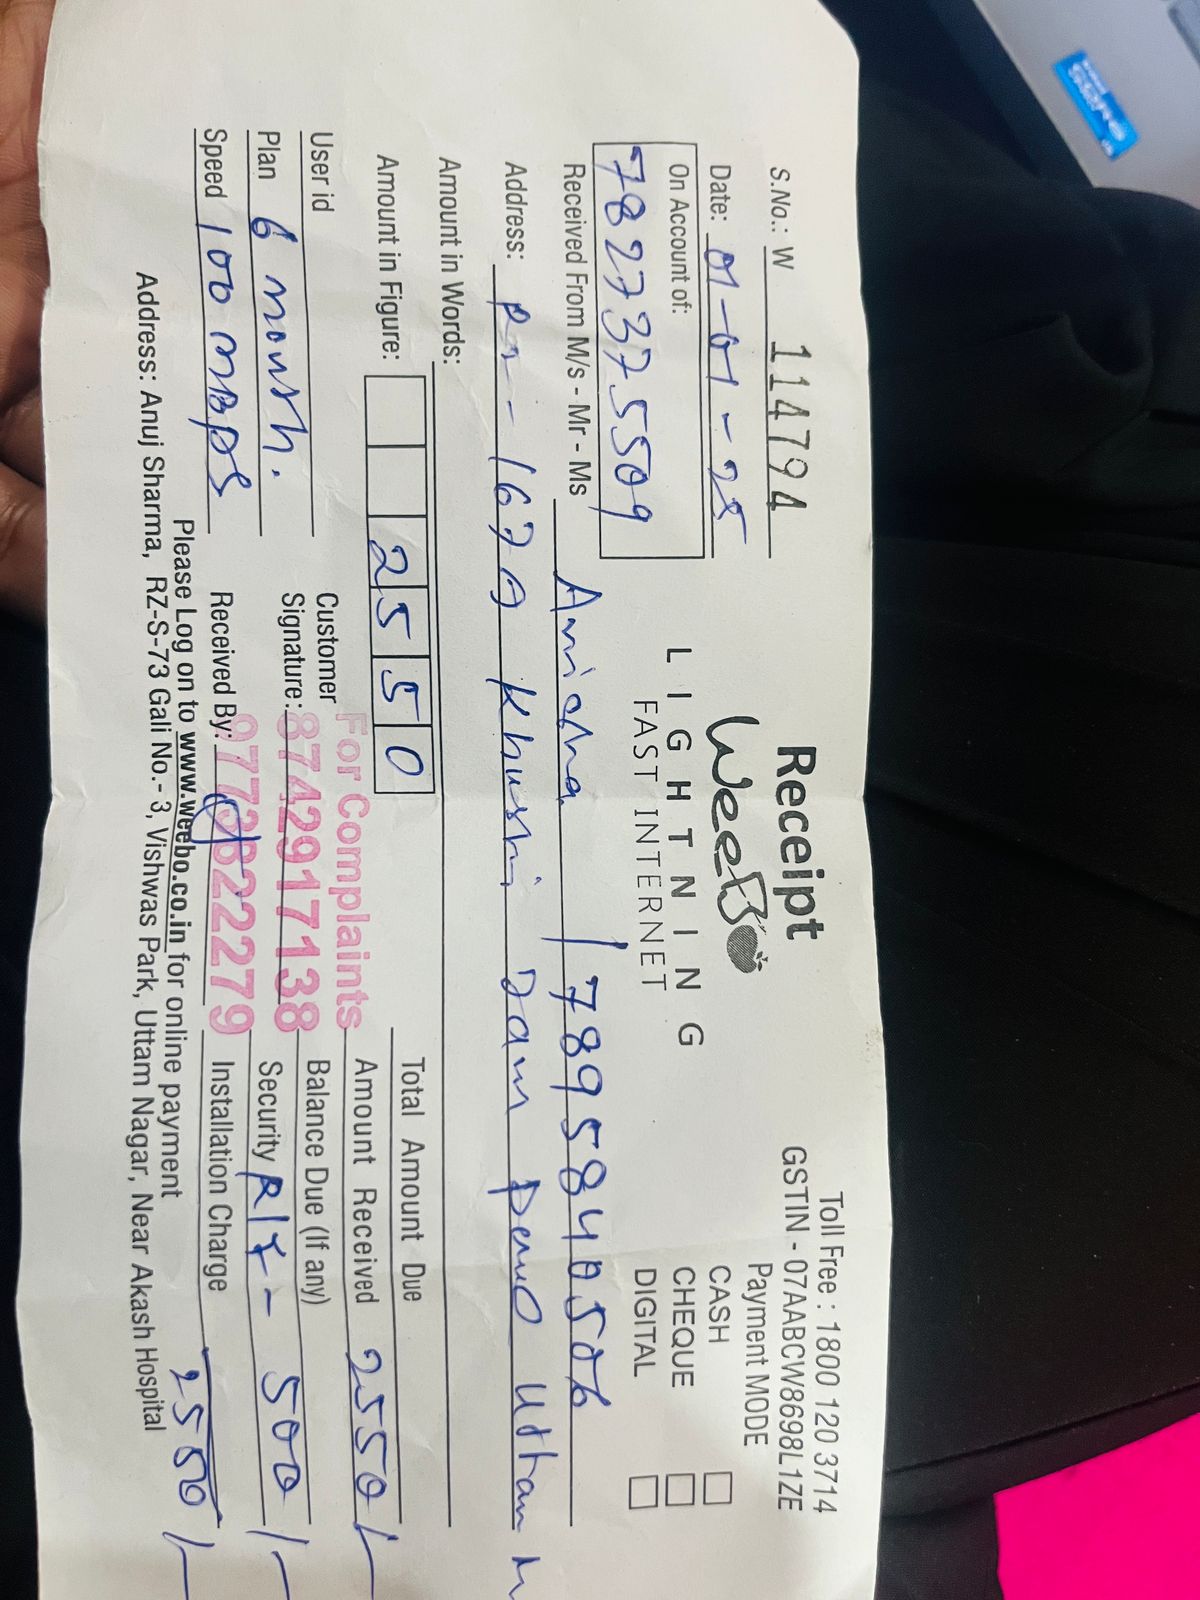 Receipt
Toll Free : 1800 120 3714
GSTIN - 07AABCW8698L1ZE
S.No.: W 114794
WeeBo
Payment MODE
Date: 01-01-25
LIGHTNING
CASH
On Account of:
FAST INTERNET
CHEQUE
7827375509
DIGITAL
Received From M/s - Mr - Ms 7895840506
Address: 167 Khushi Ram
Amount in Words:
Amount in Figure: 2550
Total Amount Due
For Complaints
Amount Received 2550/-
User id
Customer
Signature:
8742917138
Balance Due (If any)
Plan 6 month.
Security 500/-
Speed 100 MBPS
Received By:
Installation Charge
2550/-
Please Log on to www.weebo.co.in for online payment
Address: Anuj Sharma, RZ-S-73 Gali No.- 3, Vishwas Park, Uttam Nagar, Near Akash Hospital